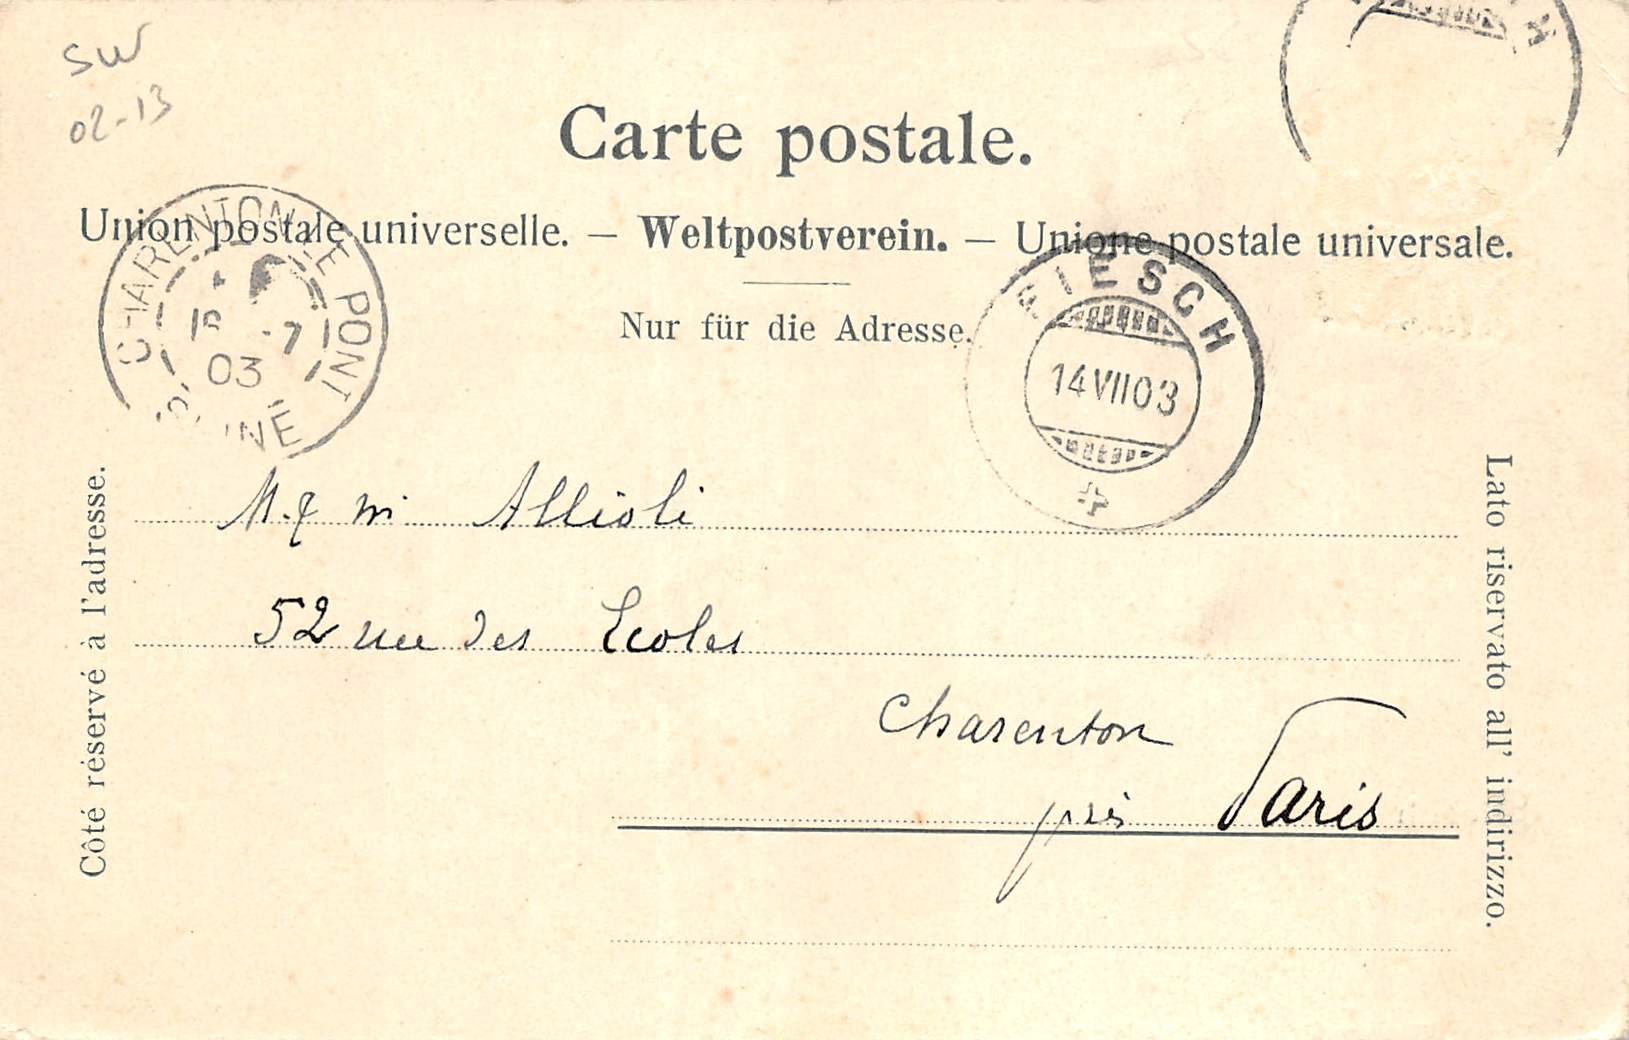 SW
02-13
Carte postale.
Union postale universelle. — Weltpostverein. — Unione postale universale.
Nur für die Adresse.
CHARENTON LE PONT
03
FIESCH
14 VII 03
Côté réservé à l'adresse.
Lato riservato all' indirizzo.
Allioli
52 rue des Ecoles
Charenton
près Paris